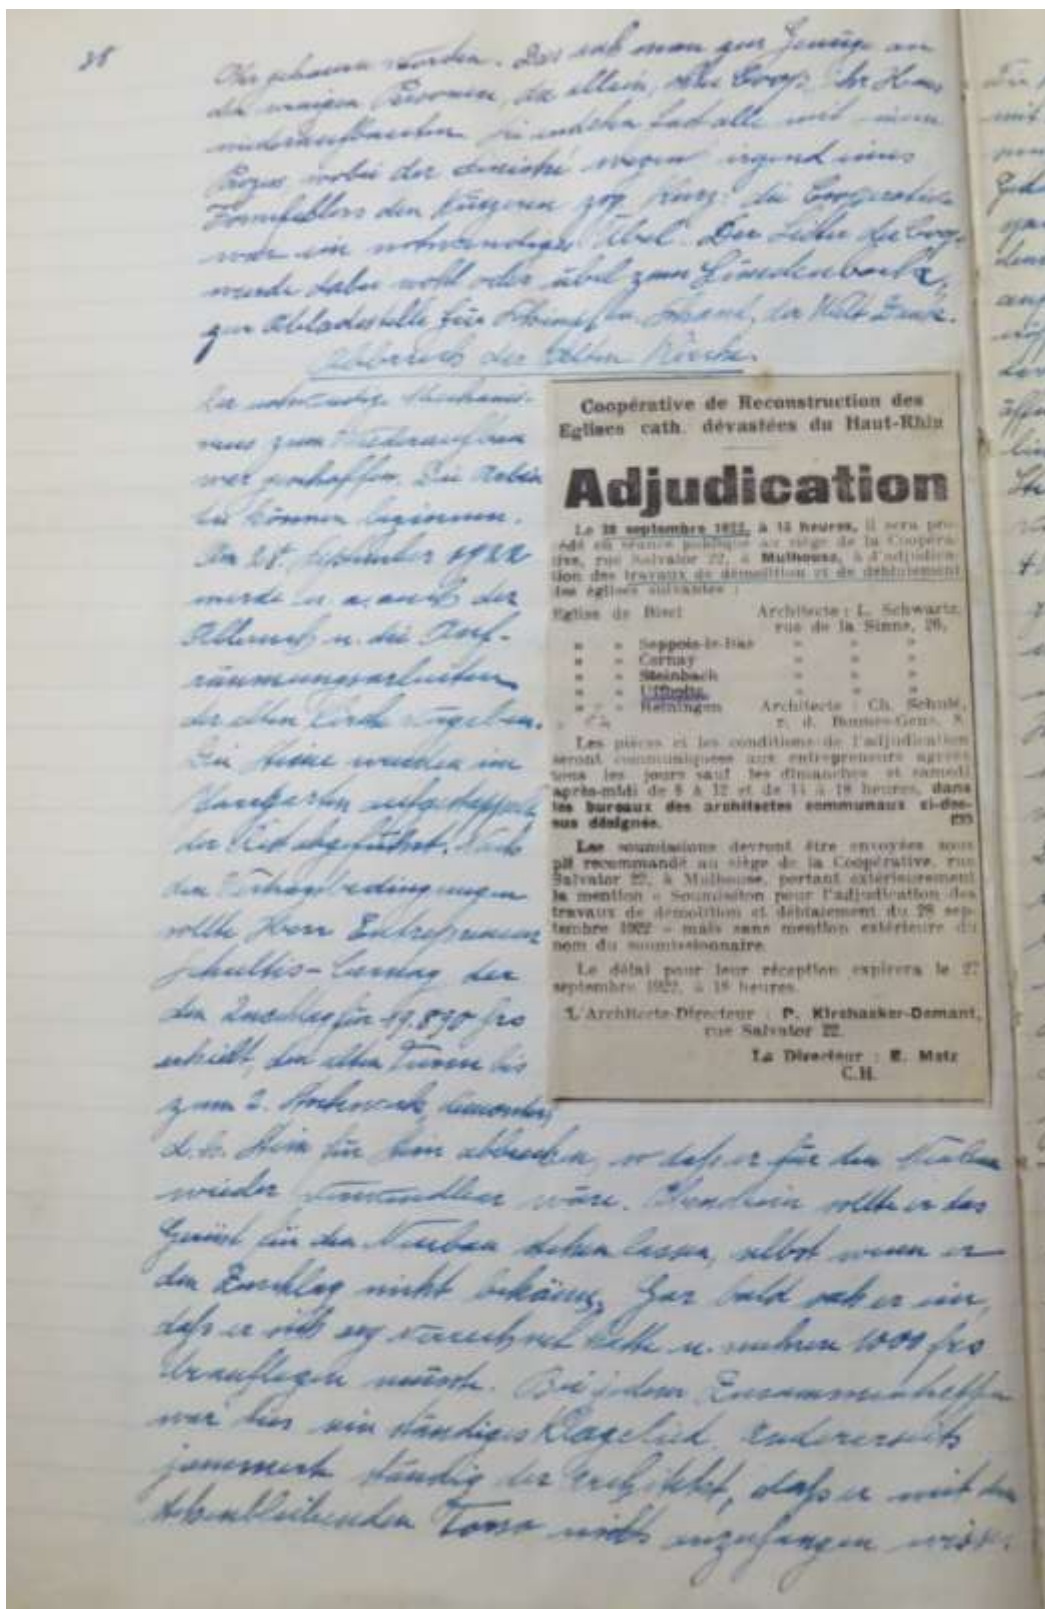 28
gehauen wurden. Das sah man zur Genüge an
den wenigen Personen, die allein, ohne Coop. ihr Haus
wiederaufbauten. Sie endeten fast alle mit einem
Prozess wobei der wegen irgend eines
Formfehlers den Kürzeren zog. Kurz: die Cooperative
war ein notwendiges Übel. Der Leiter der Coop.
wurde dabei wohl oder übel zum Sündenbock,
zur Abladestelle für der Welt
Abbruch der alten Kirche.
Der notwendige Mechanis-
mus zum Wiederaufbau
war geschaffen. Die Arbei-
ten können beginnen.
Am 28. September 1922
wurde u. a. auch der
Abbruch u. die Auf-
räumungsarbeiten
der alten Kirche vergeben.
Die Steine wurden im
Pfarrgarten
der Rest abgeführt. Nach
den bedingungen
sollte Herr Entrepreneur
Schultis-Cernay der
den Zuschlag für 19.890 frs
erhielt, den alten Turm bis
zum 2. Stockwerk,
d. h. Stein für Stein abbrechen, so daß er für den Neubau
wieder verwendbar wäre. Obendrein sollte er das
Gerüst für den Neubau stehen lassen, selbst wenn er
den Zuschlag nicht bekäme. Gar bald sah er ein,
daß er sich arg verrechnet hatte u. mehrere 1000 frs
drauflegen müsste. Bei jedem Zusammentreffen
war dies ein ständiges Klagelied. Andererseits
jammerte ständig der Architekt, daß er mit dem
stehenbleibenden Torso nichts anzufangen wisse.
Coopérative de Reconstruction des
Eglises cath. dévastées du Haut-Rhin
Adjudication
Le 28 septembre 1922, à 15 heures, il sera pro-
cédé en séance publique au siège de la Coopéra-
tive, rue Salvator 22, à Mulhouse, à l'adjudica-
tion des travaux de démolition et de déblaiement
des églises suivantes :
Eglise de Bisel Architecte : L. Schwartz,
rue de la Sinne, 26,
» » Seppois-le-Bas » » »
» » Cernay » » »
» » Steinbach » » »
» » Uffholtz » » »
» » Reiningen Architecte : Ch. Schulé,
r. d. Bonnes-Gens, 8.
Les pièces et les conditions de l'adjudication
seront communiquées aux entrepreneurs agréés
tous les jours sauf les dimanches et samedi
après-midi de 8 à 12 et de 14 à 18 heures, dans
les bureaux des architectes communaux ci-des-
sus désignés.
Les soumissions devront être envoyées sous
pli recommandé au siège de la Coopérative, rue
Salvator 22, à Mulhouse, portant extérieurement
la mention « Soumission pour l'adjudication des
travaux de démolition et déblaiement du 28 sep-
tembre 1922 » mais sans mention extérieure du
nom du soumissionnaire.
Le délai pour leur réception expirera le 27
septembre 1922, à 18 heures.
L'Architecte-Directeur : P. Kirchacker-Demant,
rue Salvator 22.
Le Directeur : E. Metz
C.H.